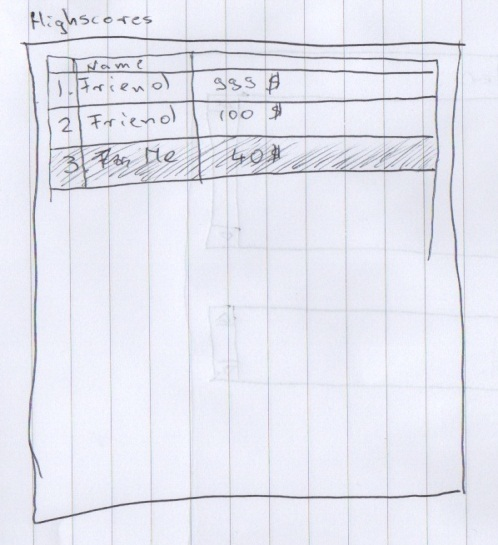 Highscores
Name
1. Friend 999 $
2 Friend 100 $
3. Me 40$